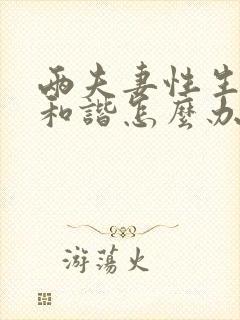 兩夫妻性生
和諧怎麼办
游荡火